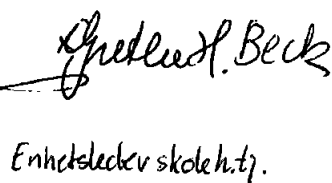 Grethe H. Beck
Enhetsleder skoleh.tj.